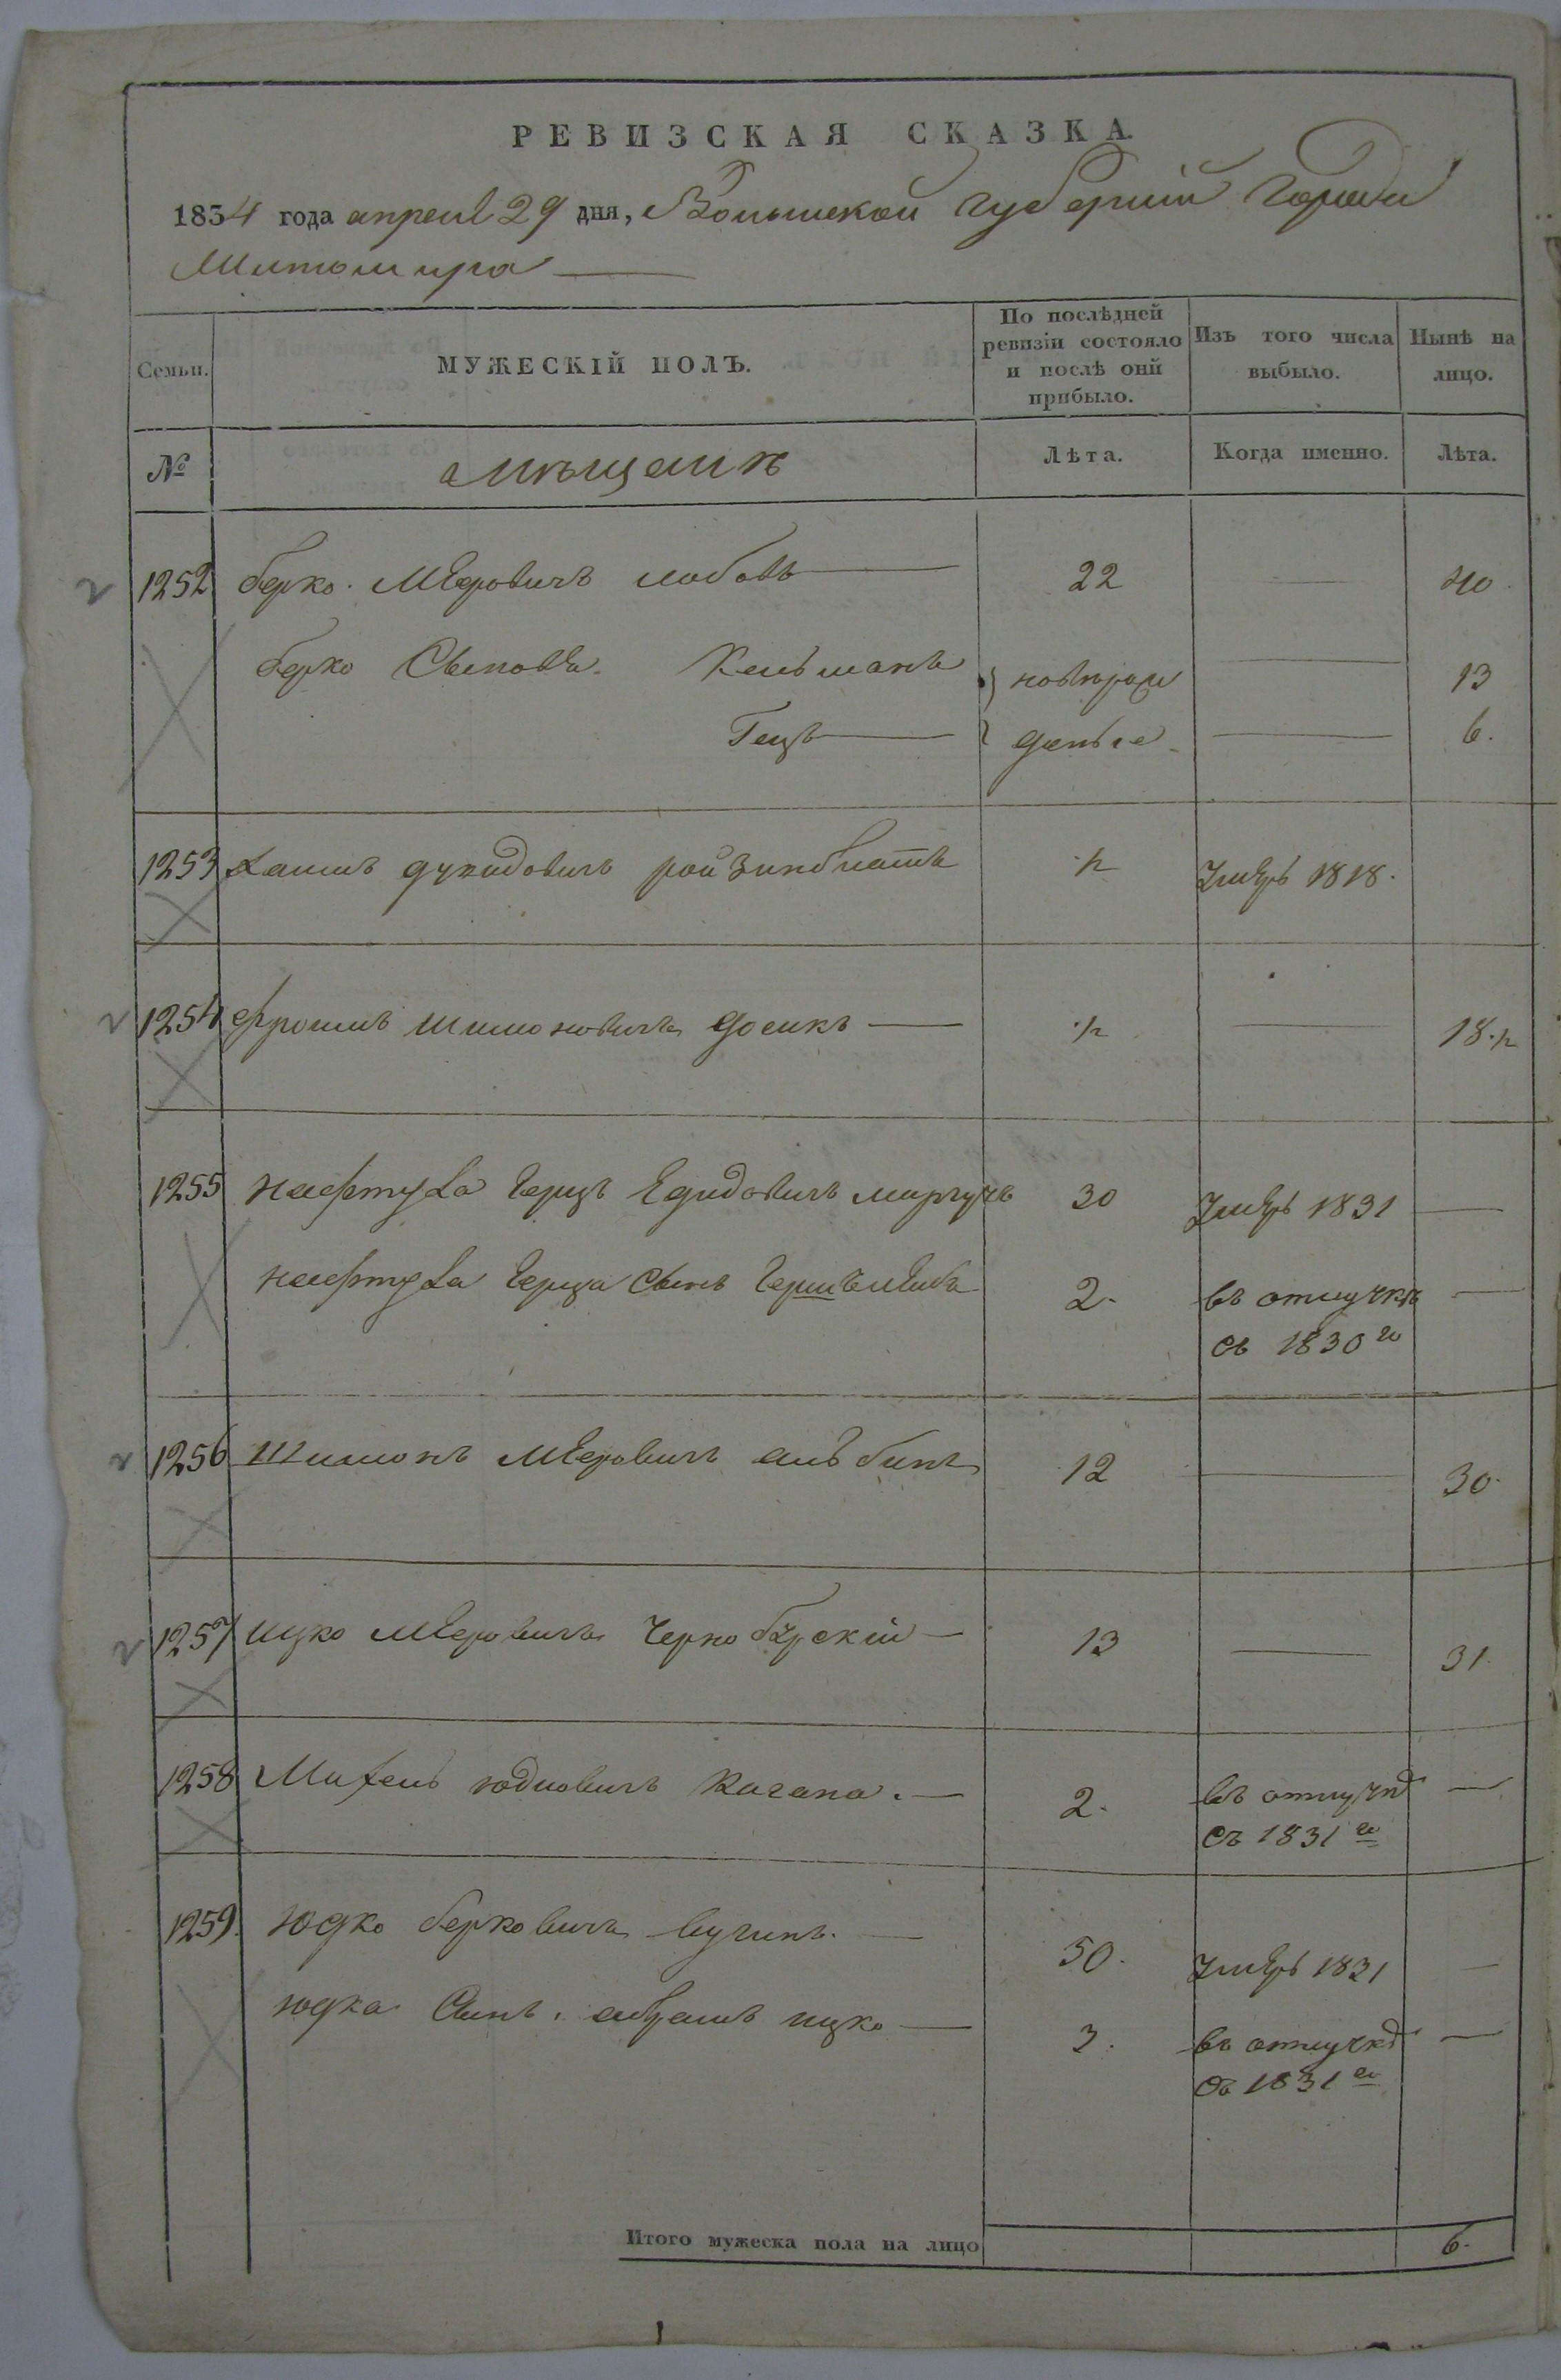 РЕВИЗСКАЯ СКАЗКА.
1834 года апреля 29 дня, Волынской губернии города
Житомира
Семьи.
МУЖЕСКІЙ ПОЛЪ.
По послѣдней ревизіи состояло и послѣ оній прибыло.
Изъ того числа выбыло.
Нынѣ на лицо.
№
мѣщанѣ
Лѣта.
Когда именно.
Лѣта.
1252 берко Мееровичъ 22 40
берко Сыновья Кельманъ новорож 13
Гецъ денные 6.
1253 Хаимъ ройзинблатъ ½ Умеръ 1818.
1254 Фроимъ Шимоновичъ ½ 18.½
1255 нафтула герцъ маргулъ 30 Умеръ 1831
нафтула герца сынъ гершъ лейба 2. въ отлучкѣ
съ 1830го
1256 Шимонъ Мееровичъ 12 30.
1257 ицко Мееровичъ 13 31.
1258 Михель Кагана. 2. въ отлучкѣ
съ 1831го
1259. юдко берковичъ 50. Умеръ 1831
юдка сынъ абрамъ ицко 3. въ отлучкѣ
съ 1831го
Итого мужеска пола на лицо 6.